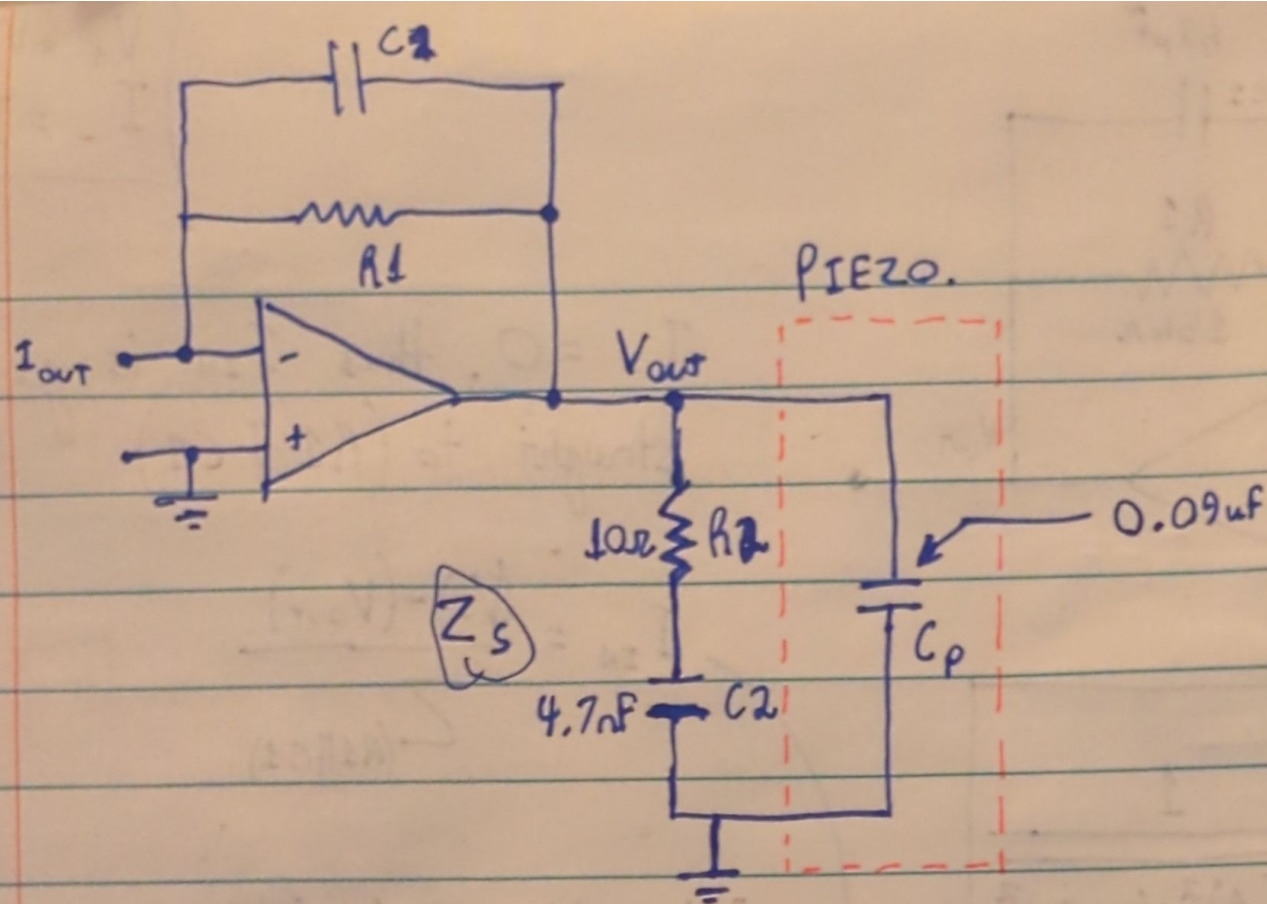 C1
R1
PIEZO.
I OUT
-
+
Vout
10Ω R2
0.09uF
Zs
Cp
4.7nF C2